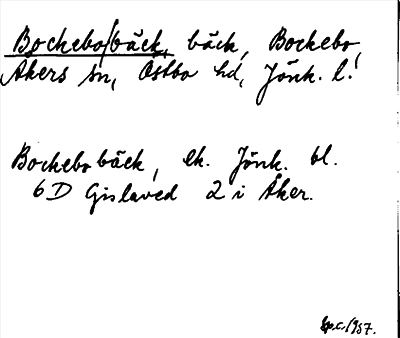 Bockebo/bäck, bäck, Bockebo,
Åkers sn, Östbo hd, Jönk. l.
Bockebobäck, ek. Jönk. bl.
6D Gislaved 2 i Åker.
Sp.c. 1957.